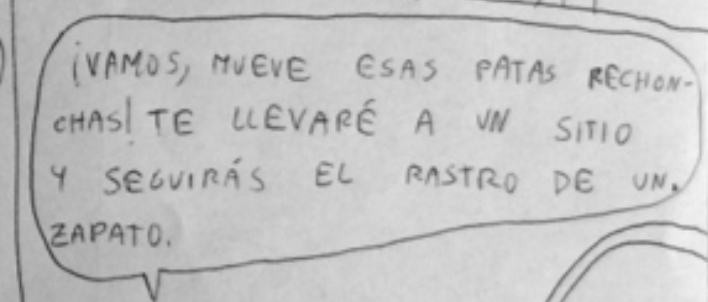 ¡VAMOS, MUEVE ESAS PATAS RECHON-
CHAS! TE LLEVARÉ A UN SITIO
Y SEGUIRÁS EL RASTRO DE UN.
ZAPATO.